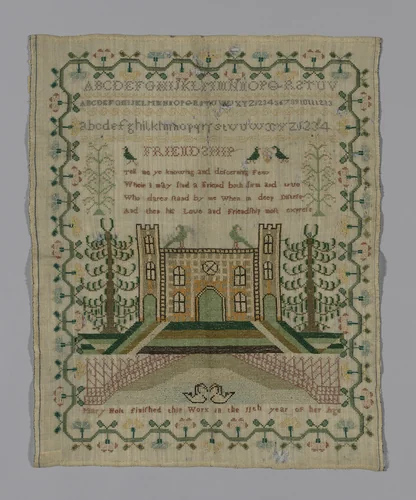 ABCDEFGHIJKLMNOPQRSTUV
ABCDEFGHIJKLMNOPQRSTUVWXYZ1234567891011213
abcdefghiklmnopqrstuvwxyz1234
FRIENDSHIP
Tell me ye knowing and discerning Few
Where I may find a Friend both firm and true
Who dares stand by me When in deep Distress
And then his Love and Friendship most express
Mary Finished this Work in the 11th year of her Age